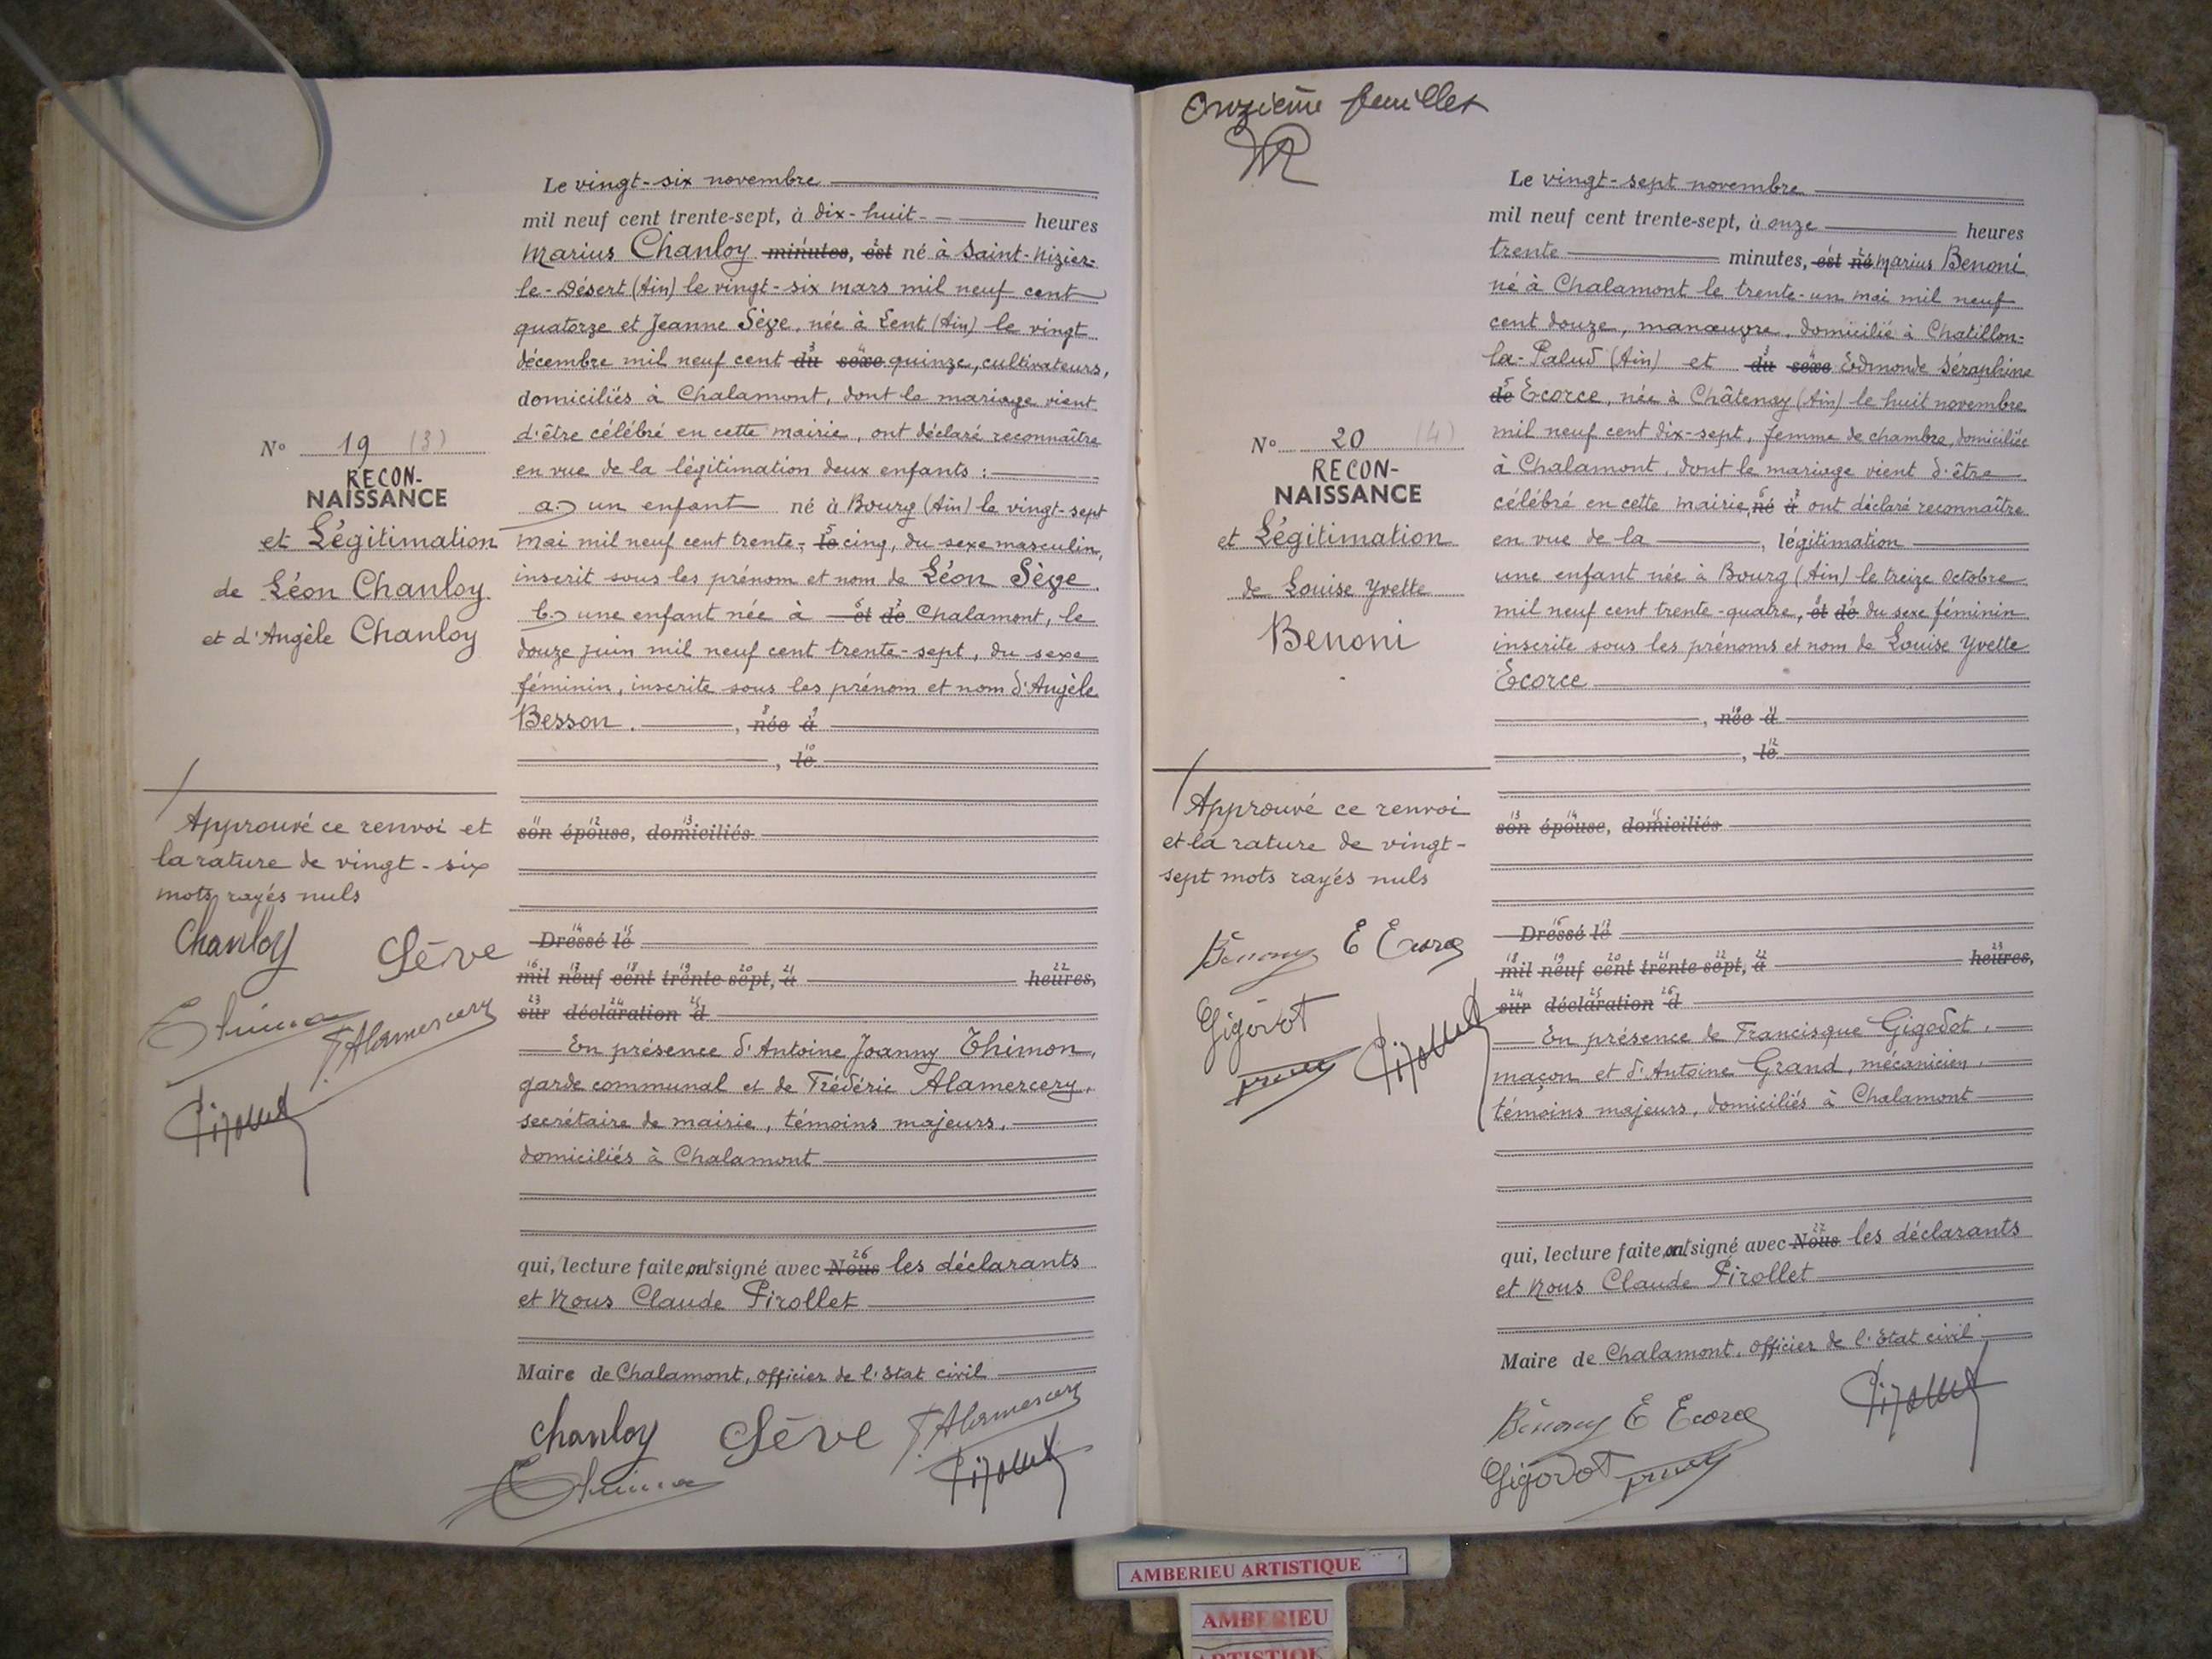 Le vingt-six novembre
mil neuf cent trente-sept, à dix-huit heures
Marius Chanloy minutes, est né à Saint-Nizier-
le-Désert (Ain) le vingt-six mars mil neuf cent
quatorze et Jeanne Sève, née à Lent (Ain) le vingt
décembre mil neuf cent du sexe quinze, cultivateurs,
domiciliés à Chalamont, dont le mariage vient
d'être célébré en cette mairie, ont déclaré reconnaître
en vue de la légitimation deux enfants :
a) un enfant né à Bourg (Ain) le vingt-sept
mai mil neuf cent trente- le cinq, du sexe masculin,
inscrit sous les prénom et nom de Léon Sève.
b) une enfant née à et de Chalamont, le
douze juin mil neuf cent trente-sept, du sexe
féminin, inscrite sous les prénom et nom d'Angèle
Besson. , née à
, le
son épouse, domiciliés
Dressé le
mil neuf cent trente sept, à heures,
sur déclaration d
En présence d'Antoine Joanny Thimon,
garde communal et de Frédéric Alamercery,
secrétaire de mairie, témoins majeurs,
domiciliés à Chalamont
qui, lecture faite, ont signé avec Nous les déclarants
et Nous Claude Pirollet
Maire de Chalamont, officier de l'Etat civil
Chanloy Sève F. Alamercery
N° 19 (3)
RECON-
NAISSANCE
et Légitimation
de Léon Chanloy
et d'Angèle Chanloy
Approuvé ce renvoi et
la rature de vingt-six
mots rayés nuls
Chanloy Sève
F. Alamercery
Onzième feuillet
Le vingt-sept novembre
mil neuf cent trente-sept, à onze heures
trente minutes, est né Marius Benoni
né à Chalamont le trente-un mai mil neuf
cent douze, manœuvre, domicilié à Chatillon-
la-Palud (Ain) et du sexe Edmonde Séraphine
de Ecorce, née à Châtenay (Ain) le huit novembre
mil neuf cent dix-sept, femme de chambre, domiciliée
à Chalamont, dont le mariage vient d'être
célébré en cette mairie, né à ont déclaré reconnaître
en vue de la , légitimation
une enfant née à Bourg (Ain) le treize Octobre
mil neuf cent trente-quatre, et de du sexe féminin
inscrite sous les prénoms et nom de Louise Yvette
Ecorce
, née à
, le
son épouse, domiciliés
Dressé le
mil neuf cent trente sept, à heures,
sur déclaration d
En présence de Francisque Gigodot,
maçon et d'Antoine Grand, mécanicien,
témoins majeurs, domiciliés à Chalamont
qui, lecture faite, ont signé avec Nous les déclarants
et Nous Claude Pirollet
Maire de Chalamont, officier de l'Etat civil
E Ecorce
Gigodot
N° 20 (4)
RECON-
NAISSANCE
et Légitimation
de Louise Yvette
Benoni
Approuvé ce renvoi
et la rature de vingt-
sept mots rayés nuls
E Ecorce
Gigodot
AMBERIEU ARTISTIQUE
AMBERIEU
ARTISTIQUE